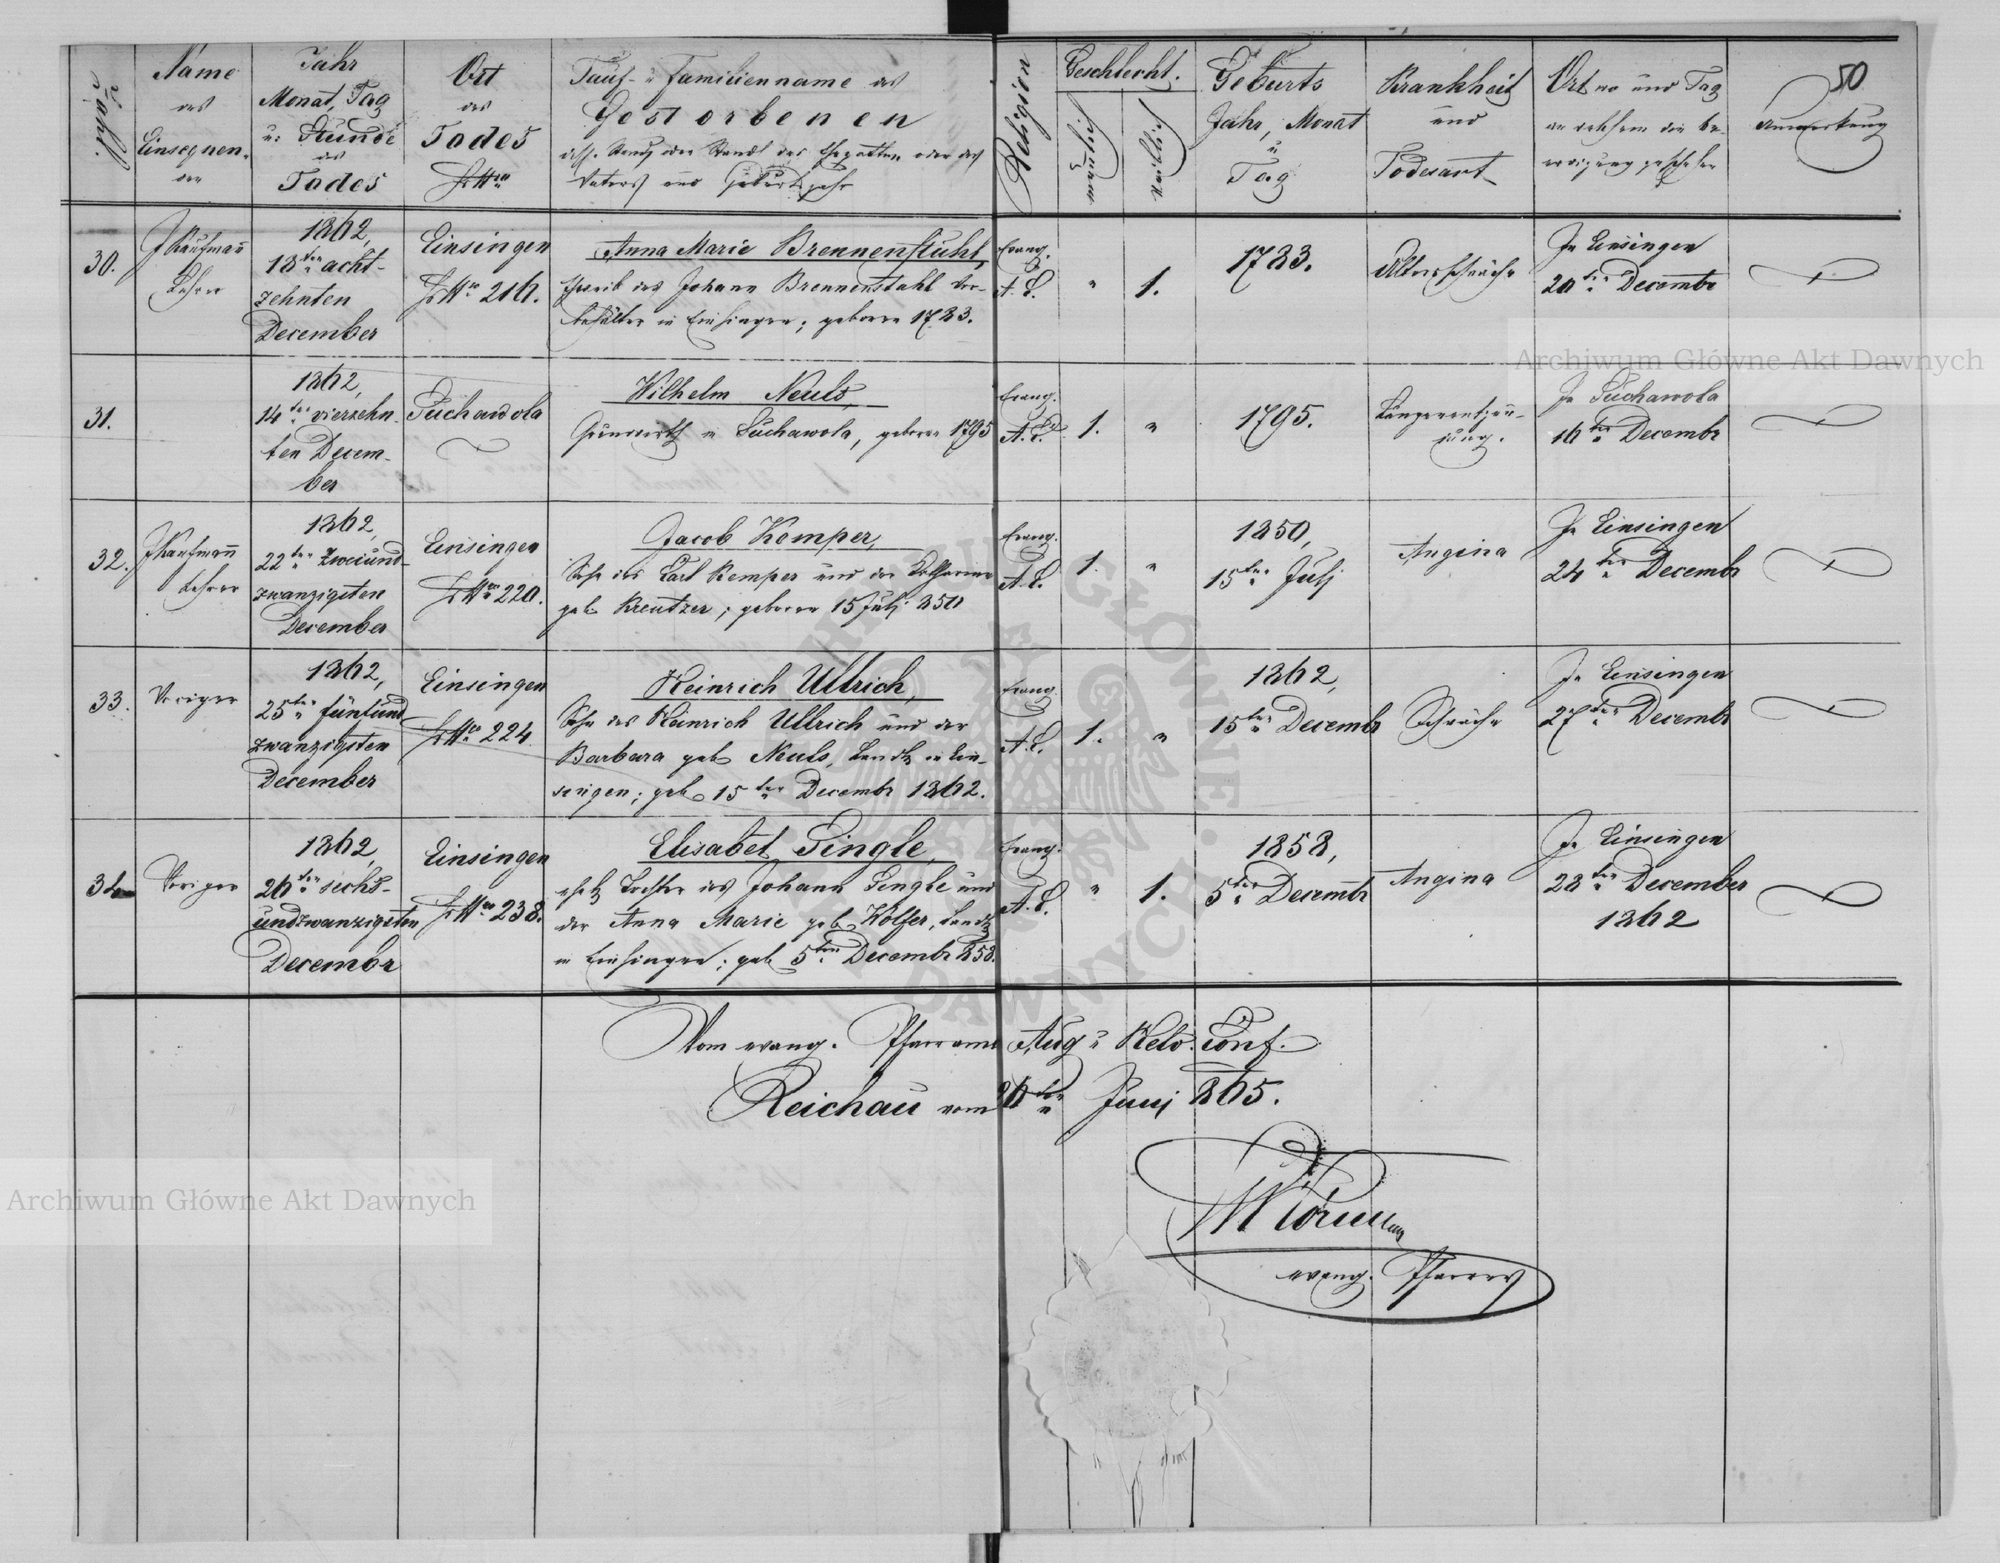 Zahl.
Name
des
Einsegnen-
den
Jahr
Monat, Tag
u. Stunde
des
Todes
Ort
des
Todes
Hs Nro
Tauf- u Familienname des
Gestorbenen
dess. Stand oder Stand des Ehegatten oder des
Vaters und Geburtsjahr
Religion
Geschlecht.
männlich
weiblich
Geburts
Jahr, Monat
u
Tag
Krankheit
und
Todesart
Ort wo und Tag
an welchem die Be-
erdigung geschehen
50
Anmerkung
30.
J Kaufmann
Lehrer
1862,
18ten acht-
zehnten
December
Einsingen
Hs Nro 216.
Anna Marie Brennenstuhl,
Eheweib des Johann Brennenstuhl Vor-
behälter in Einsingen; geboren 1783.
Evang.
A. C.
"
1.
1783.
Altersschwäche
In Einsingen
20ten Decembr
31.
1862,
14ten vierzehn-
ten Decem-
ber
Suchawola
Wilhelm Neuls,
Grundwirth in Suchawola, geboren 1795
Evang.
A. C.
1.
"
1795.
Lungenentzün-
dung.
In Suchawola
16ten Decembr
32.
J Kaufmann
Lehrer
1862,
22ten zweiund-
zwanzigsten
December
Einsingen
Hs Nro 220.
Jacob Kemper,
Sohn des Carl Kemper und der Catharina
geb Kreutzer; geboren 15 Julj 850
Evang.
A. C.
1.
"
1850,
15ten Julj
Angina
In Einsingen
24ten Decembr
33.
Voriger
1862,
25ten fünfund
zwanzigsten
December
Einsingen
Hs Nro 224
Heinrich Ullrich,
Sohn des Heinrich Ullrich und der
Barbara geb Neuls, Landl in Ein-
singen; geb 15ten Decembr 1862.
Evang.
A. C.
1.
"
1862,
15ten Decembr
Schwäche
In Einsingen
27ten Decembr
34
Voriger
1862,
26ten sechs-
undzwanzigsten
Decembr
Einsingen
Hs Nro 238.
Elisabet Gingle,
ehel Tochter des Johann Gingle und
der Anna Marie geb Wolfer, Landl
in Einsingen; geb 5ten Decembr 858.
Evang.
A. C.
"
1.
1858,
5ten Decembr
Angina
In Einsingen
28ten December
1862
Vom evang. Pfarramt Aug u Helv. Conf.
Reichau vom 26ten Junj 865.
evang. Pfarrer
Archiwum Główne Akt Dawnych
Archiwum Główne Akt Dawnych
ARCHIWUM GŁÓWNE AKT DAWNYCH